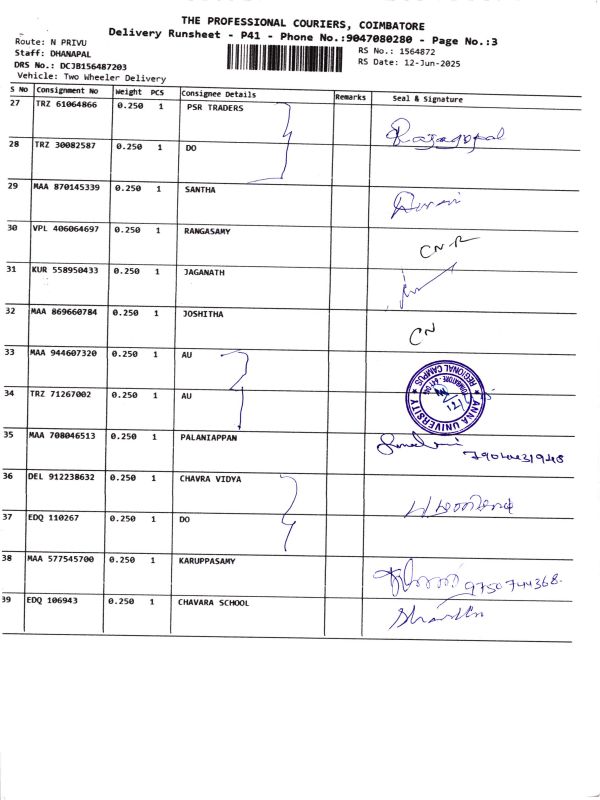 THE PROFESSIONAL COURIERS, COIMBATORE
Delivery Runsheet - P41 - Phone No.:9047080280 - Page No.:3
Route: N PRIVU
Staff: DHANAPAL
DRS No.: DCJB156487203
Vehicle: Two Wheeler Delivery
RS No.: 1564872
RS Date: 12-Jun-2025
S No Consignment No Weight PCS Consignee Details Remarks Seal & Signature
27 TRZ 61064866 0.250 1 PSR TRADERS
Rajagopal
28 TRZ 30082587 0.250 1 DO
29 MAA 870145339 0.250 1 SANTHA
30 VPL 406064697 0.250 1 RANGASAMY
CNR
31 KUR 558950433 0.250 1 JAGANATH
32 MAA 869660784 0.250 1 JOSHITHA
CN
33 MAA 944607320 0.250 1 AU
34 TRZ 71267002 0.250 1 AU
ANNA UNIVERSITY
REGIONAL CAMPUS
35 MAA 708046513 0.250 1 PALANIAPPAN
36 DEL 912238632 0.250 1 CHAVRA VIDYA
37 EDQ 110267 0.250 1 DO
38 MAA 577545700 0.250 1 KARUPPASAMY
9750744368.
39 EDQ 106943 0.250 1 CHAVARA SCHOOL